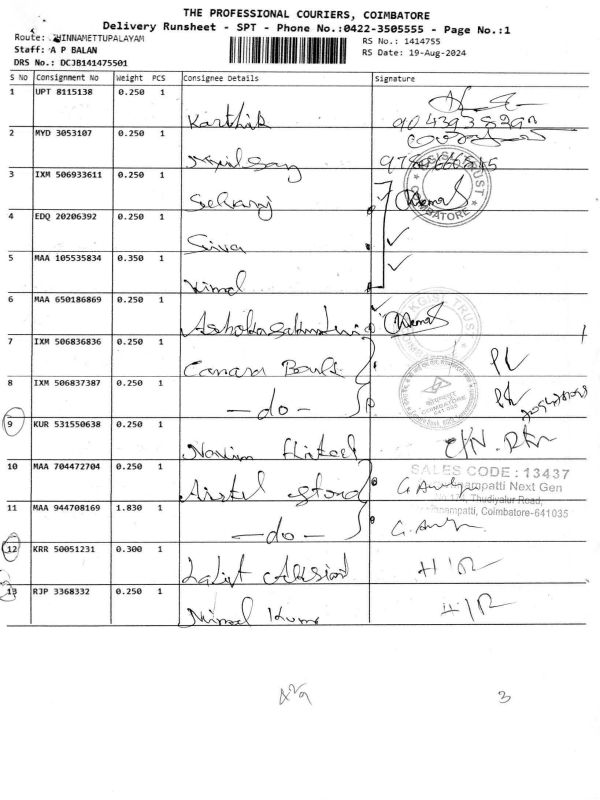 THE PROFESSIONAL COURIERS, COIMBATORE
Delivery Runsheet - SPT - Phone No.:0422-3505555 - Page No.:1
Route: CHINNAMETTUPALAYAM
RS No.: 1414755
Staff: A P BALAN
RS Date: 19-Aug-2024
DRS No.: DCJB141475501
S No Consignment No Weight PCS Consignee Details Signature
1 UPT 8115138 0.250 1 Karthik
2 MYD 3053107 0.250 1
3 IXM 506933611 0.250 1 Selvaraj
TRUST COIMBATORE
4 EDQ 20206392 0.250 1 Siva
5 MAA 105535834 0.350 1 Vimal
6 MAA 650186869 0.250 1
TRUST
7 IXM 506836836 0.250 1 Canara Bank
8 IXM 506837387 0.250 1 -do-
9 KUR 531550638 0.250 1
10 MAA 704472704 0.250 1 Airtel Store
SALES CODE : 13437
Next Gen
No 174, Thudiyalur Road,
Coimbatore-641035
11 MAA 944708169 1.830 1 -do-
12 KRR 50051231 0.300 1 Lalit
13 RJP 3368332 0.250 1 Nirmal Kumar
3